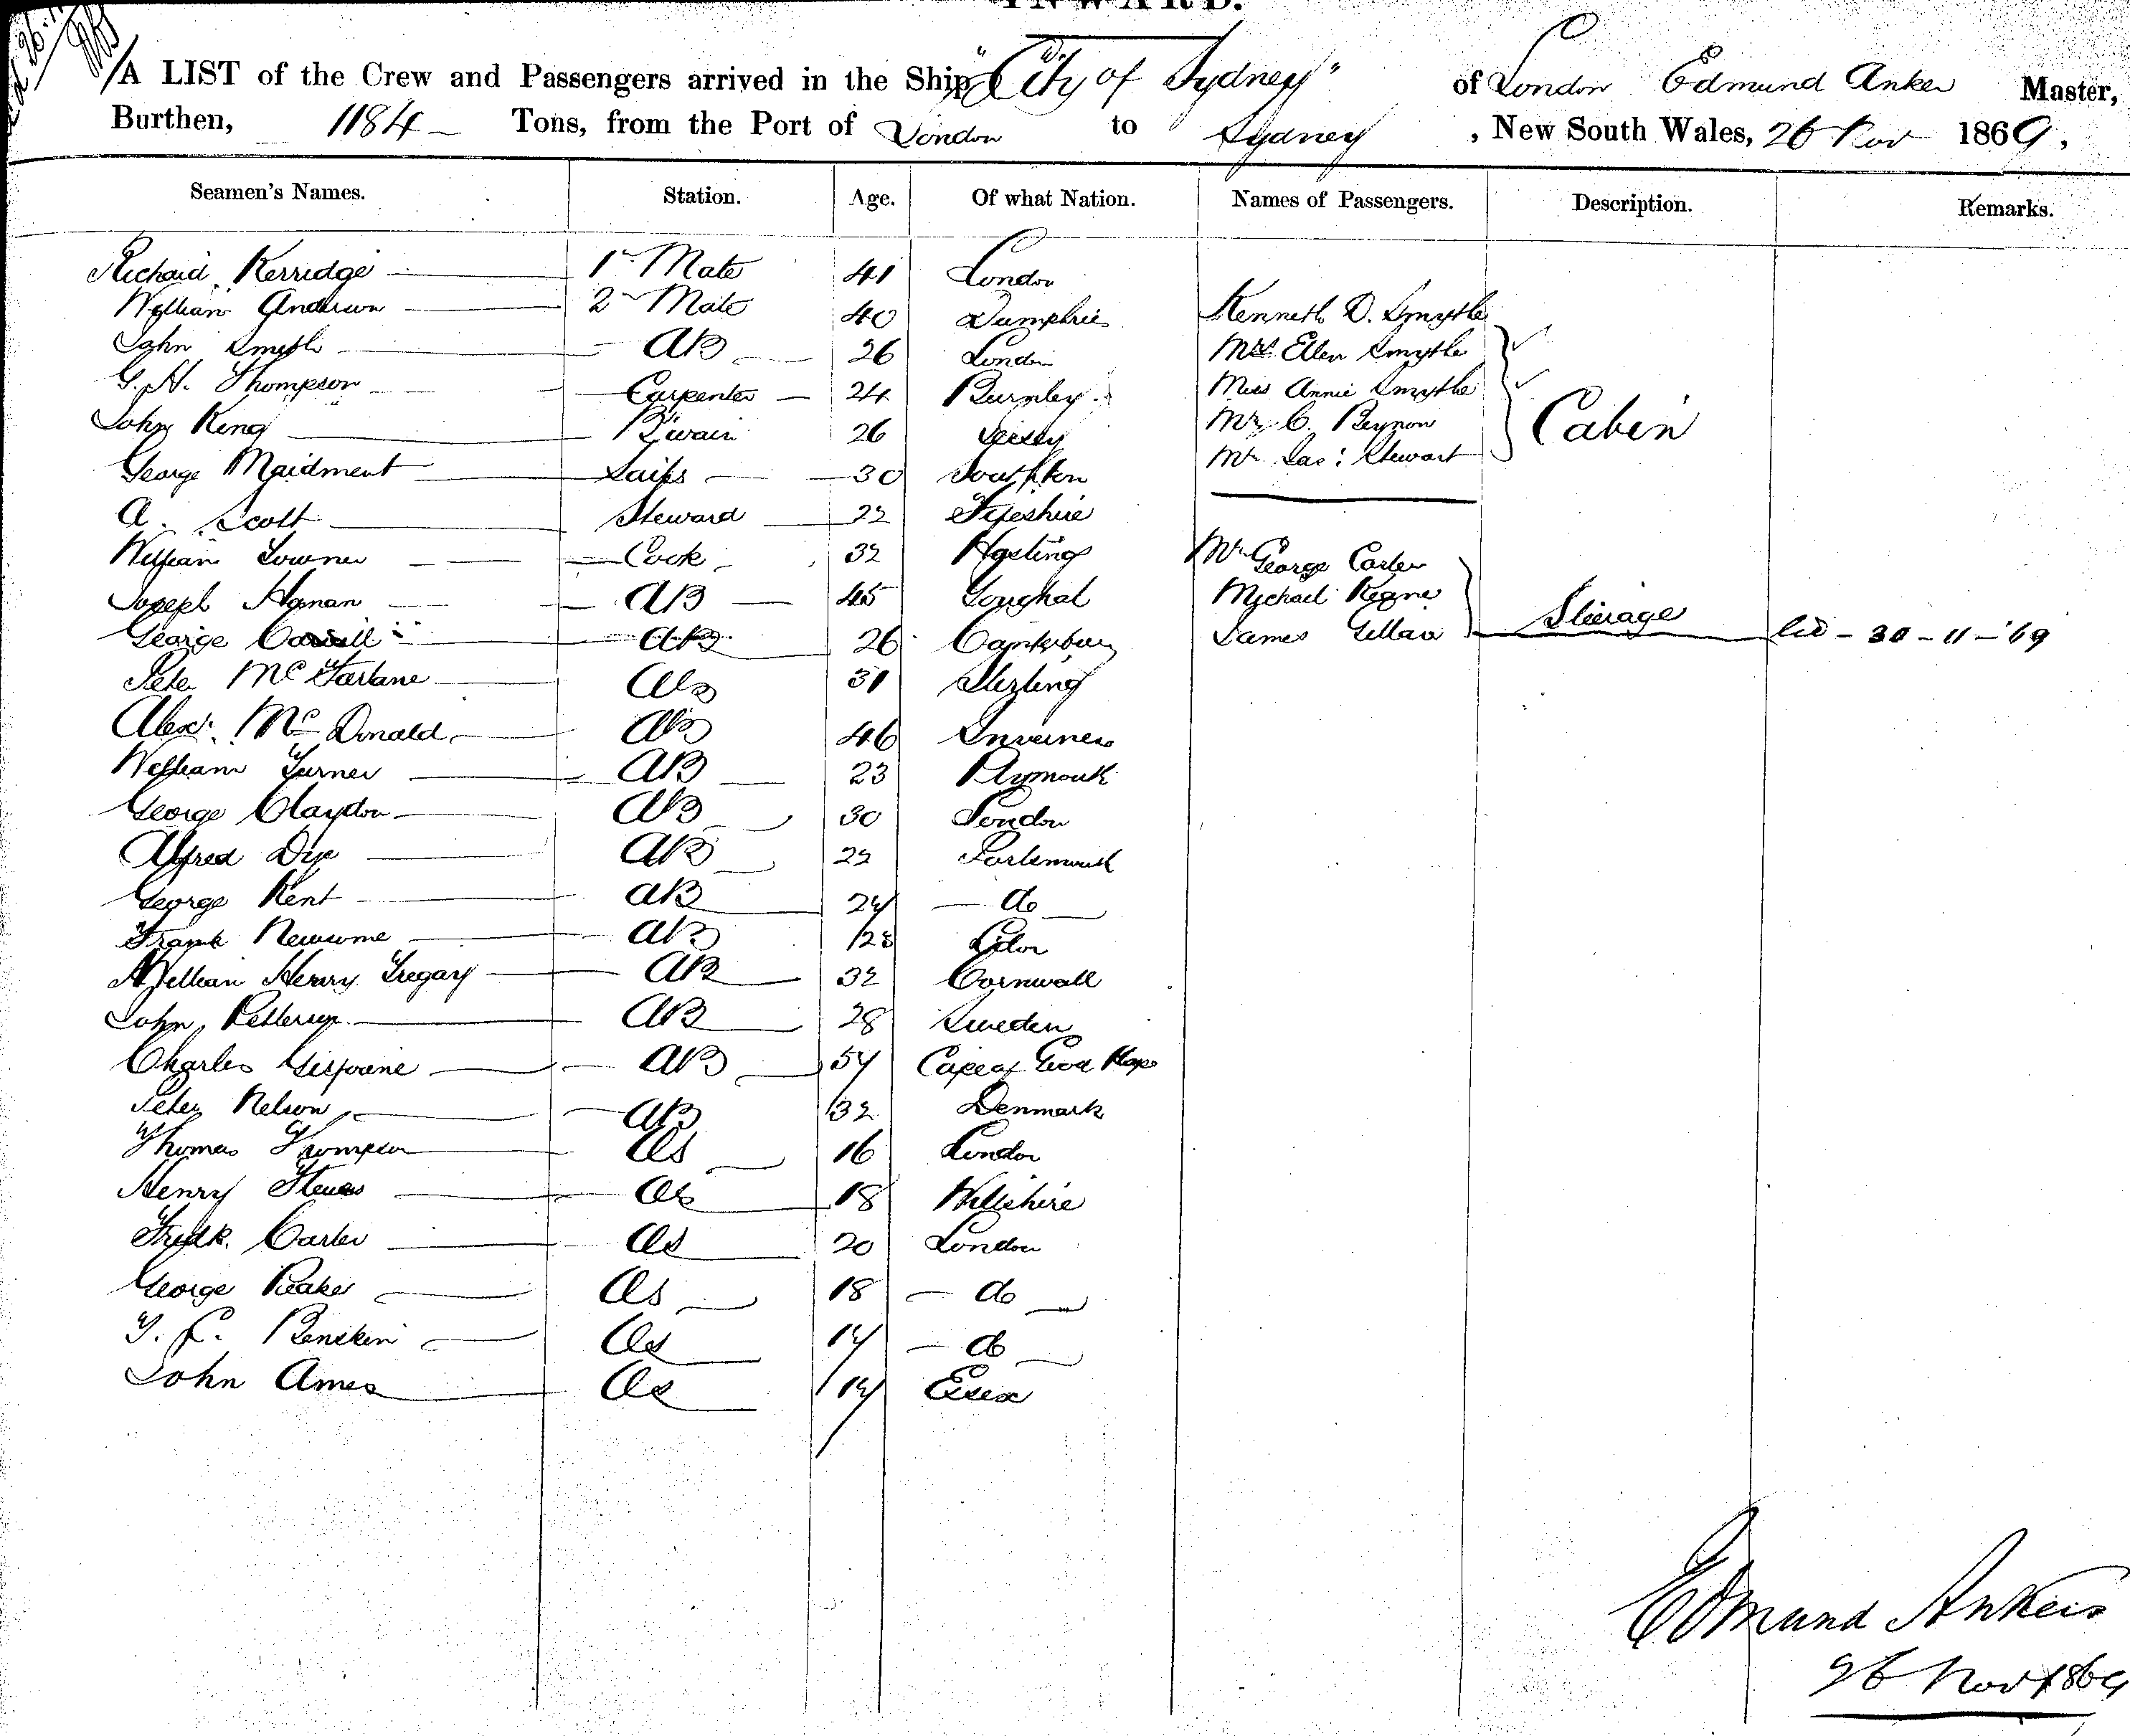 INWARD.
A LIST of the Crew and Passengers arrived in the Ship "City of Sydney" of London Edmund Anker Master,
Burthen, 1184 Tons, from the Port of London to Sydney, New South Wales, 26 Nov 1869,
Seamen's Names. Station. Age. Of what Nation. Names of Passengers. Description. Remarks.
Richard Kerridge 1 Mate 41 London
William Andrew 2 Mate 40 Dumphries Kenneth D. Smythe
John Smith AB 26 London Mrs Ellen Smythe
G. H. Thompson Carpenter 24 Burnley Miss Annie Smythe
John King B'swain 26 Jersey Mr C. Beynon Cabin
George Maidment Sails 30 South'ton Mr Jas: Stewart
A. Scott Steward 22 Fifeshire
William Cook 32 Hastings Mr George Carter
Joseph Hanan AB 45 Youghal Michael
George AB 26 Canterbury James Steerage 30-11-'69
Peter McFarlane AB 31 Sterling
Alexr. McDonald AB 46 Inverness
William Turner AB 23 Plymouth
George Claydon AB 30 London
Alfred Dix AB 22 Portsmouth
George Kent AB 24 do
Frank Newsome AB 28
William Henry Tregary AB 32 Cornwall
John AB 28 Sweden
Charles AB 54 Cape of Good Hope
Peter Nelson AB 32 Denmark
Thomas Thompson OS 16 London
Henry OS 18 Wiltshire
Fredk. Carter OS 20 London
George Peake OS 18 do
T. C. OS 14 do
John Ames OS 14 Essex
Edmund Ankers
26 Nov 1869